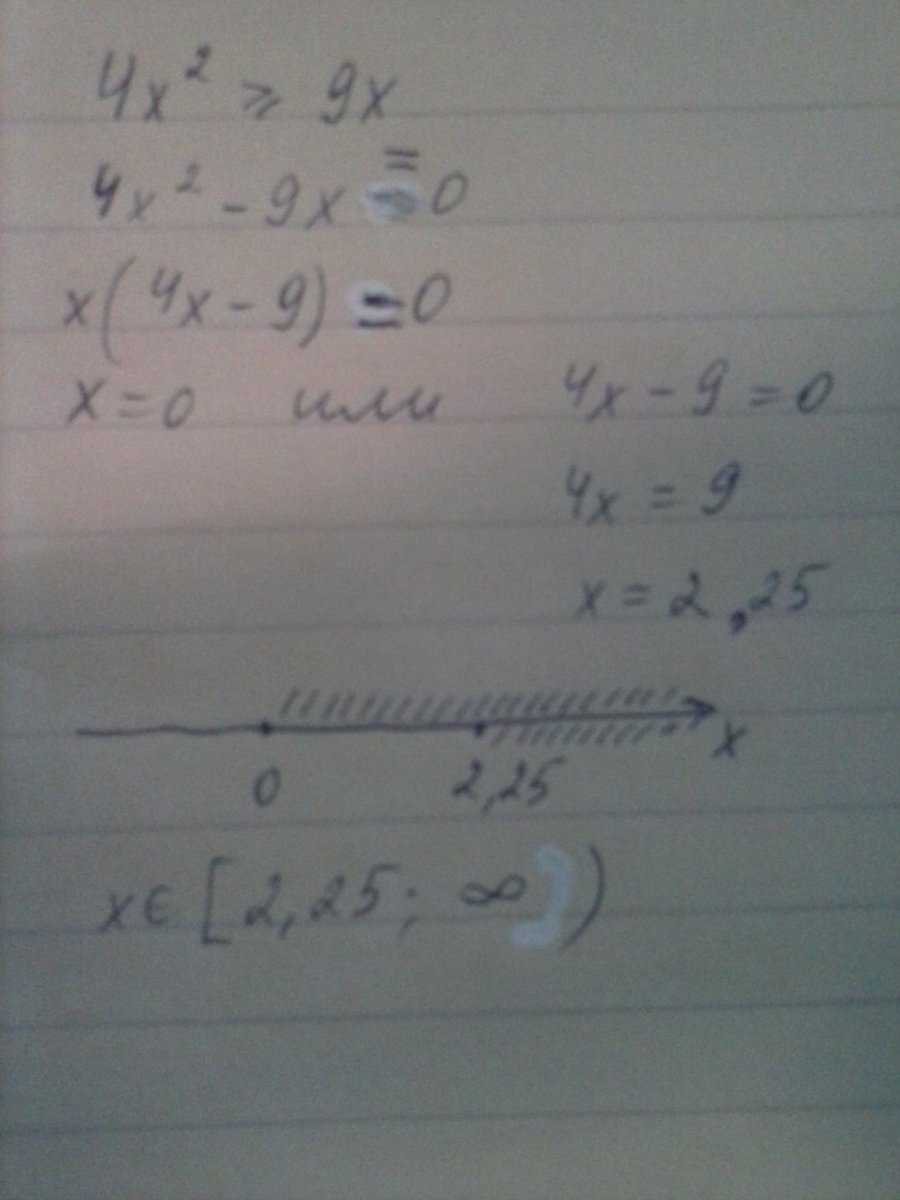 4x² ⩾ 9x
4x² - 9x = 0
x(4x - 9) = 0
x = 0 или 4x - 9 = 0
4x = 9
x = 2,25
0 2,25 x
x ∈ [2,25; ∞)